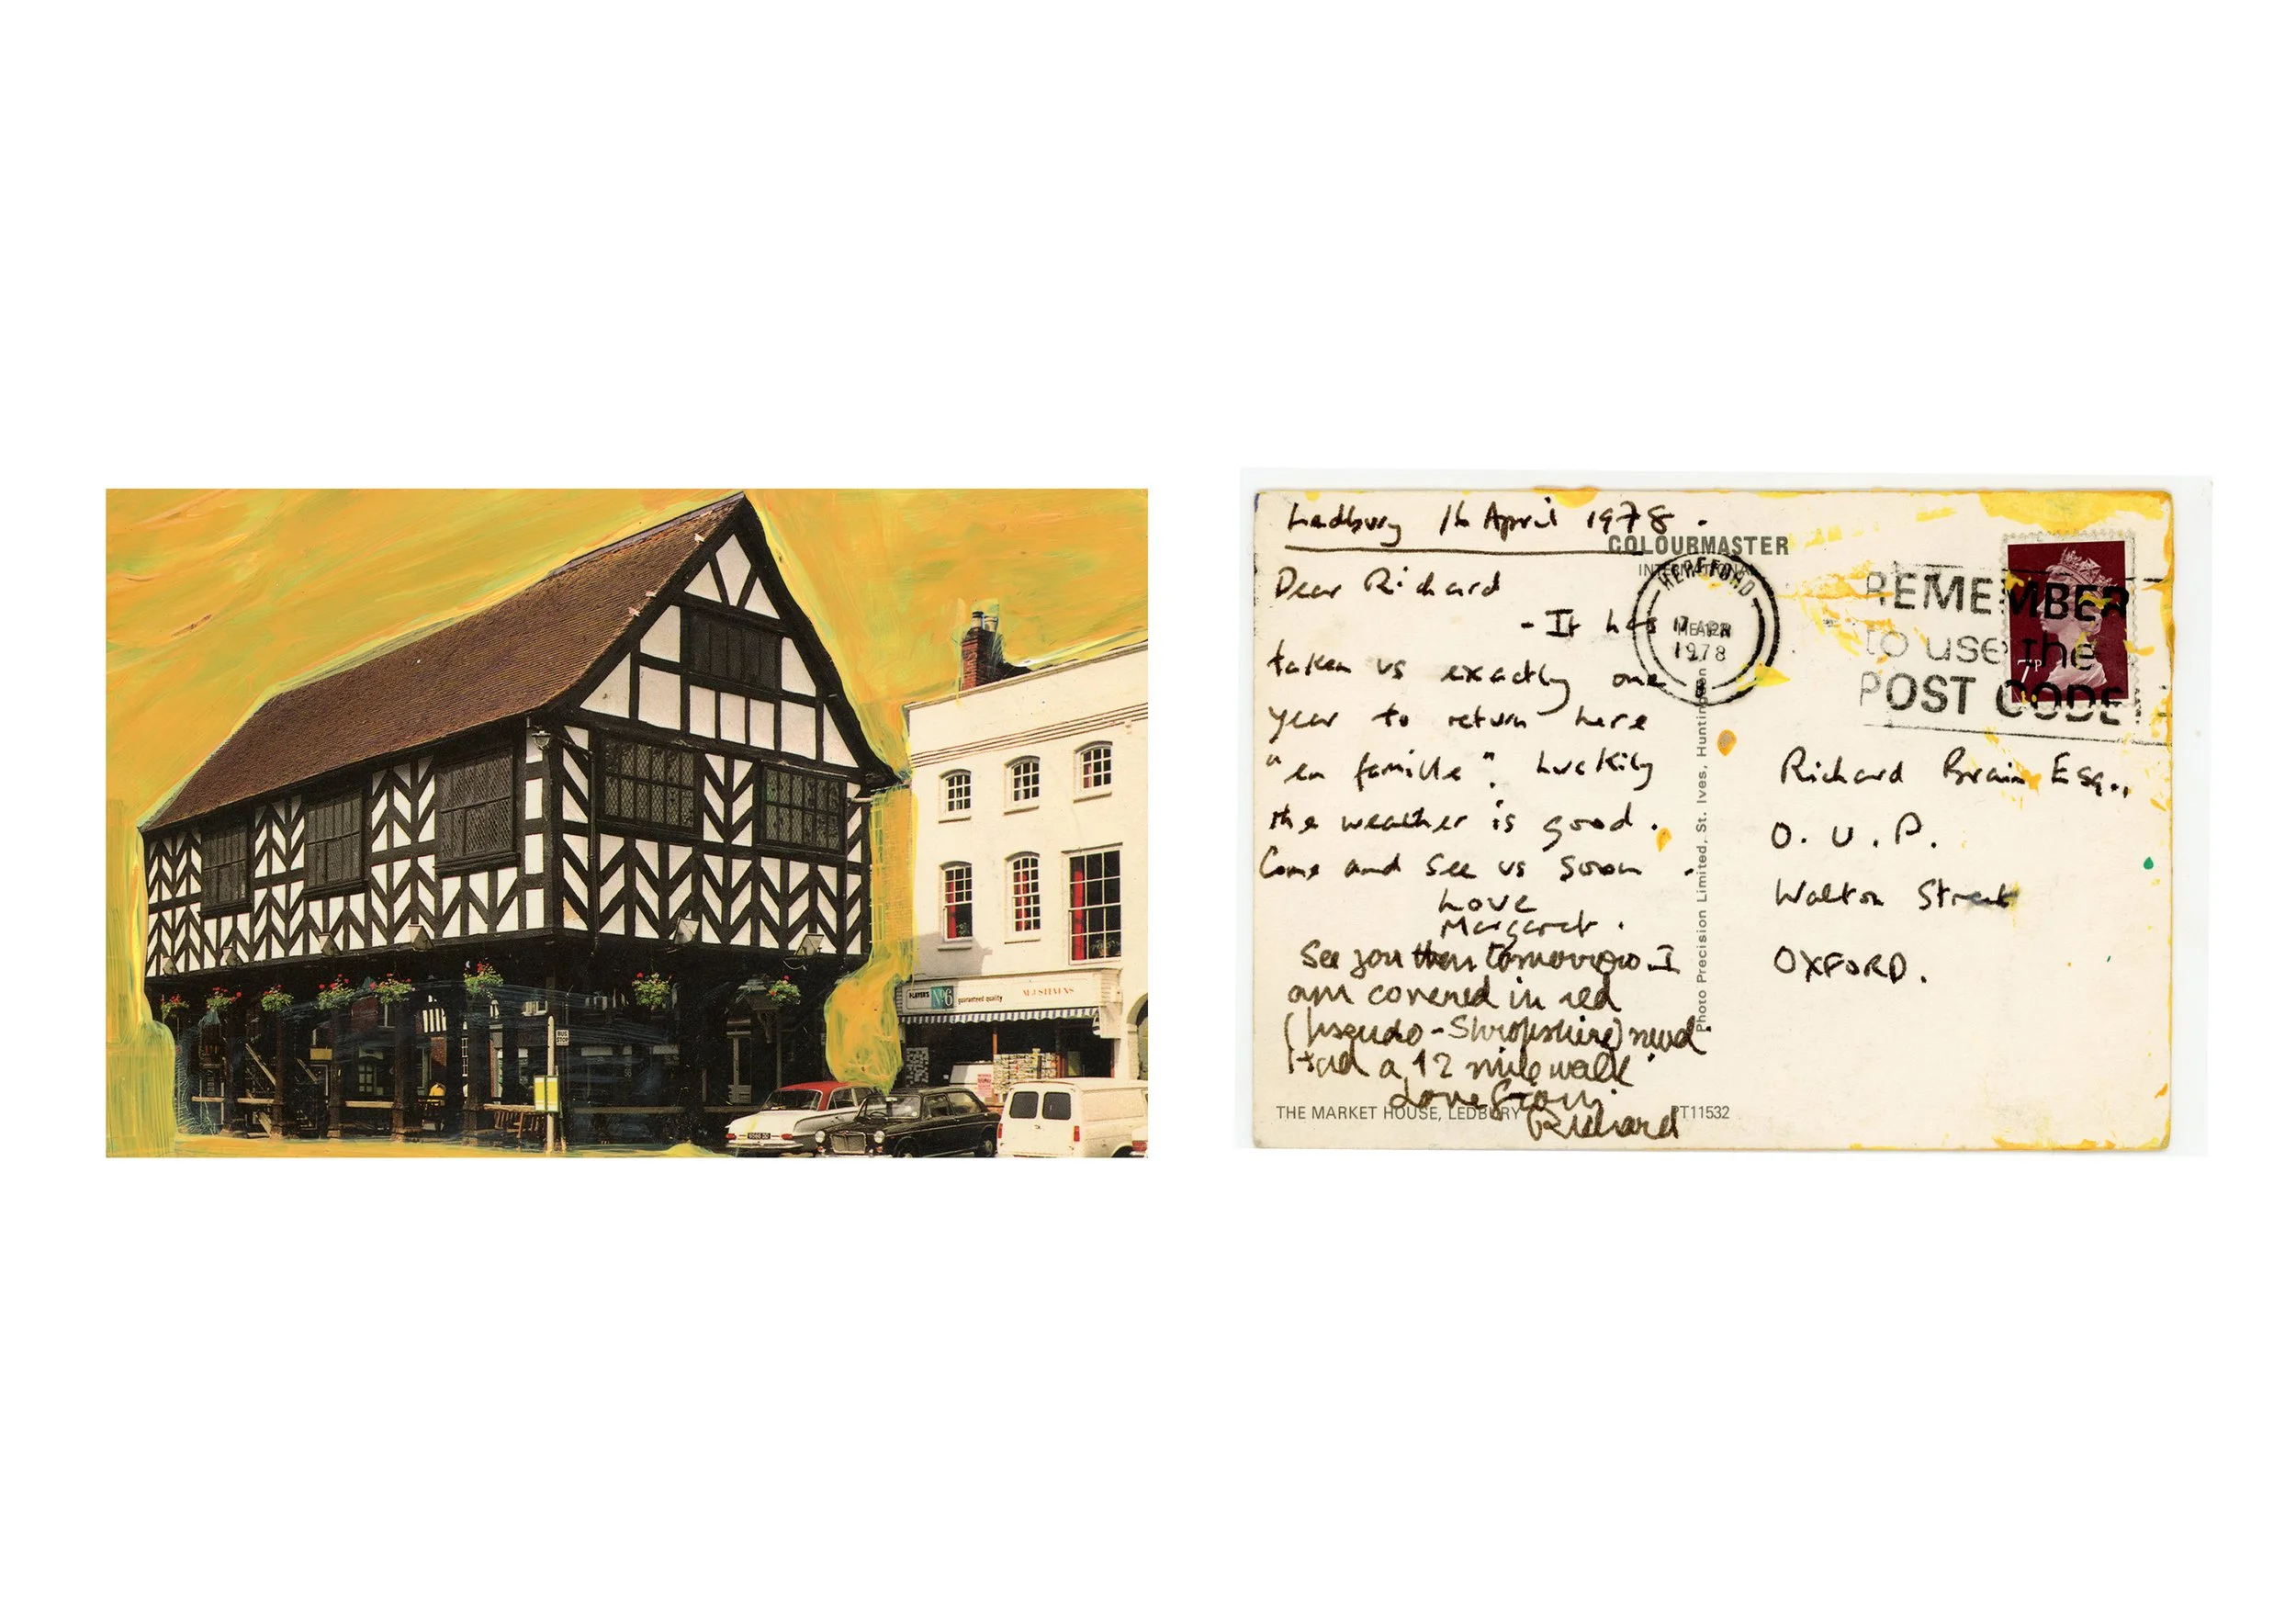 BUS
STOP
PLAYER'S No6 guaranteed quality M.J. STEVENS
Ledbury 16 April 1978.
COLOURMASTER
INTERNATIONAL
Dear Richard
- It has
taken us exactly one
year to return here
"en famille". Luckily
the weather is good.
Come and see us soon.
Love
Margaret.
See you then tomorrow. I
am covered in red
(pseudo-Shropshire) mud.
Had a 12 mile walk.
Love from
Richard
THE MARKET HOUSE, LEDBURY PT11532
Photo Precision Limited, St. Ives, Huntingdon
HEREFORD
17 APR
1978
REMEMBER
to use the
POST CODE
7P
Richard Brain Esq.,
O.U.P.
Walton Street
OXFORD.